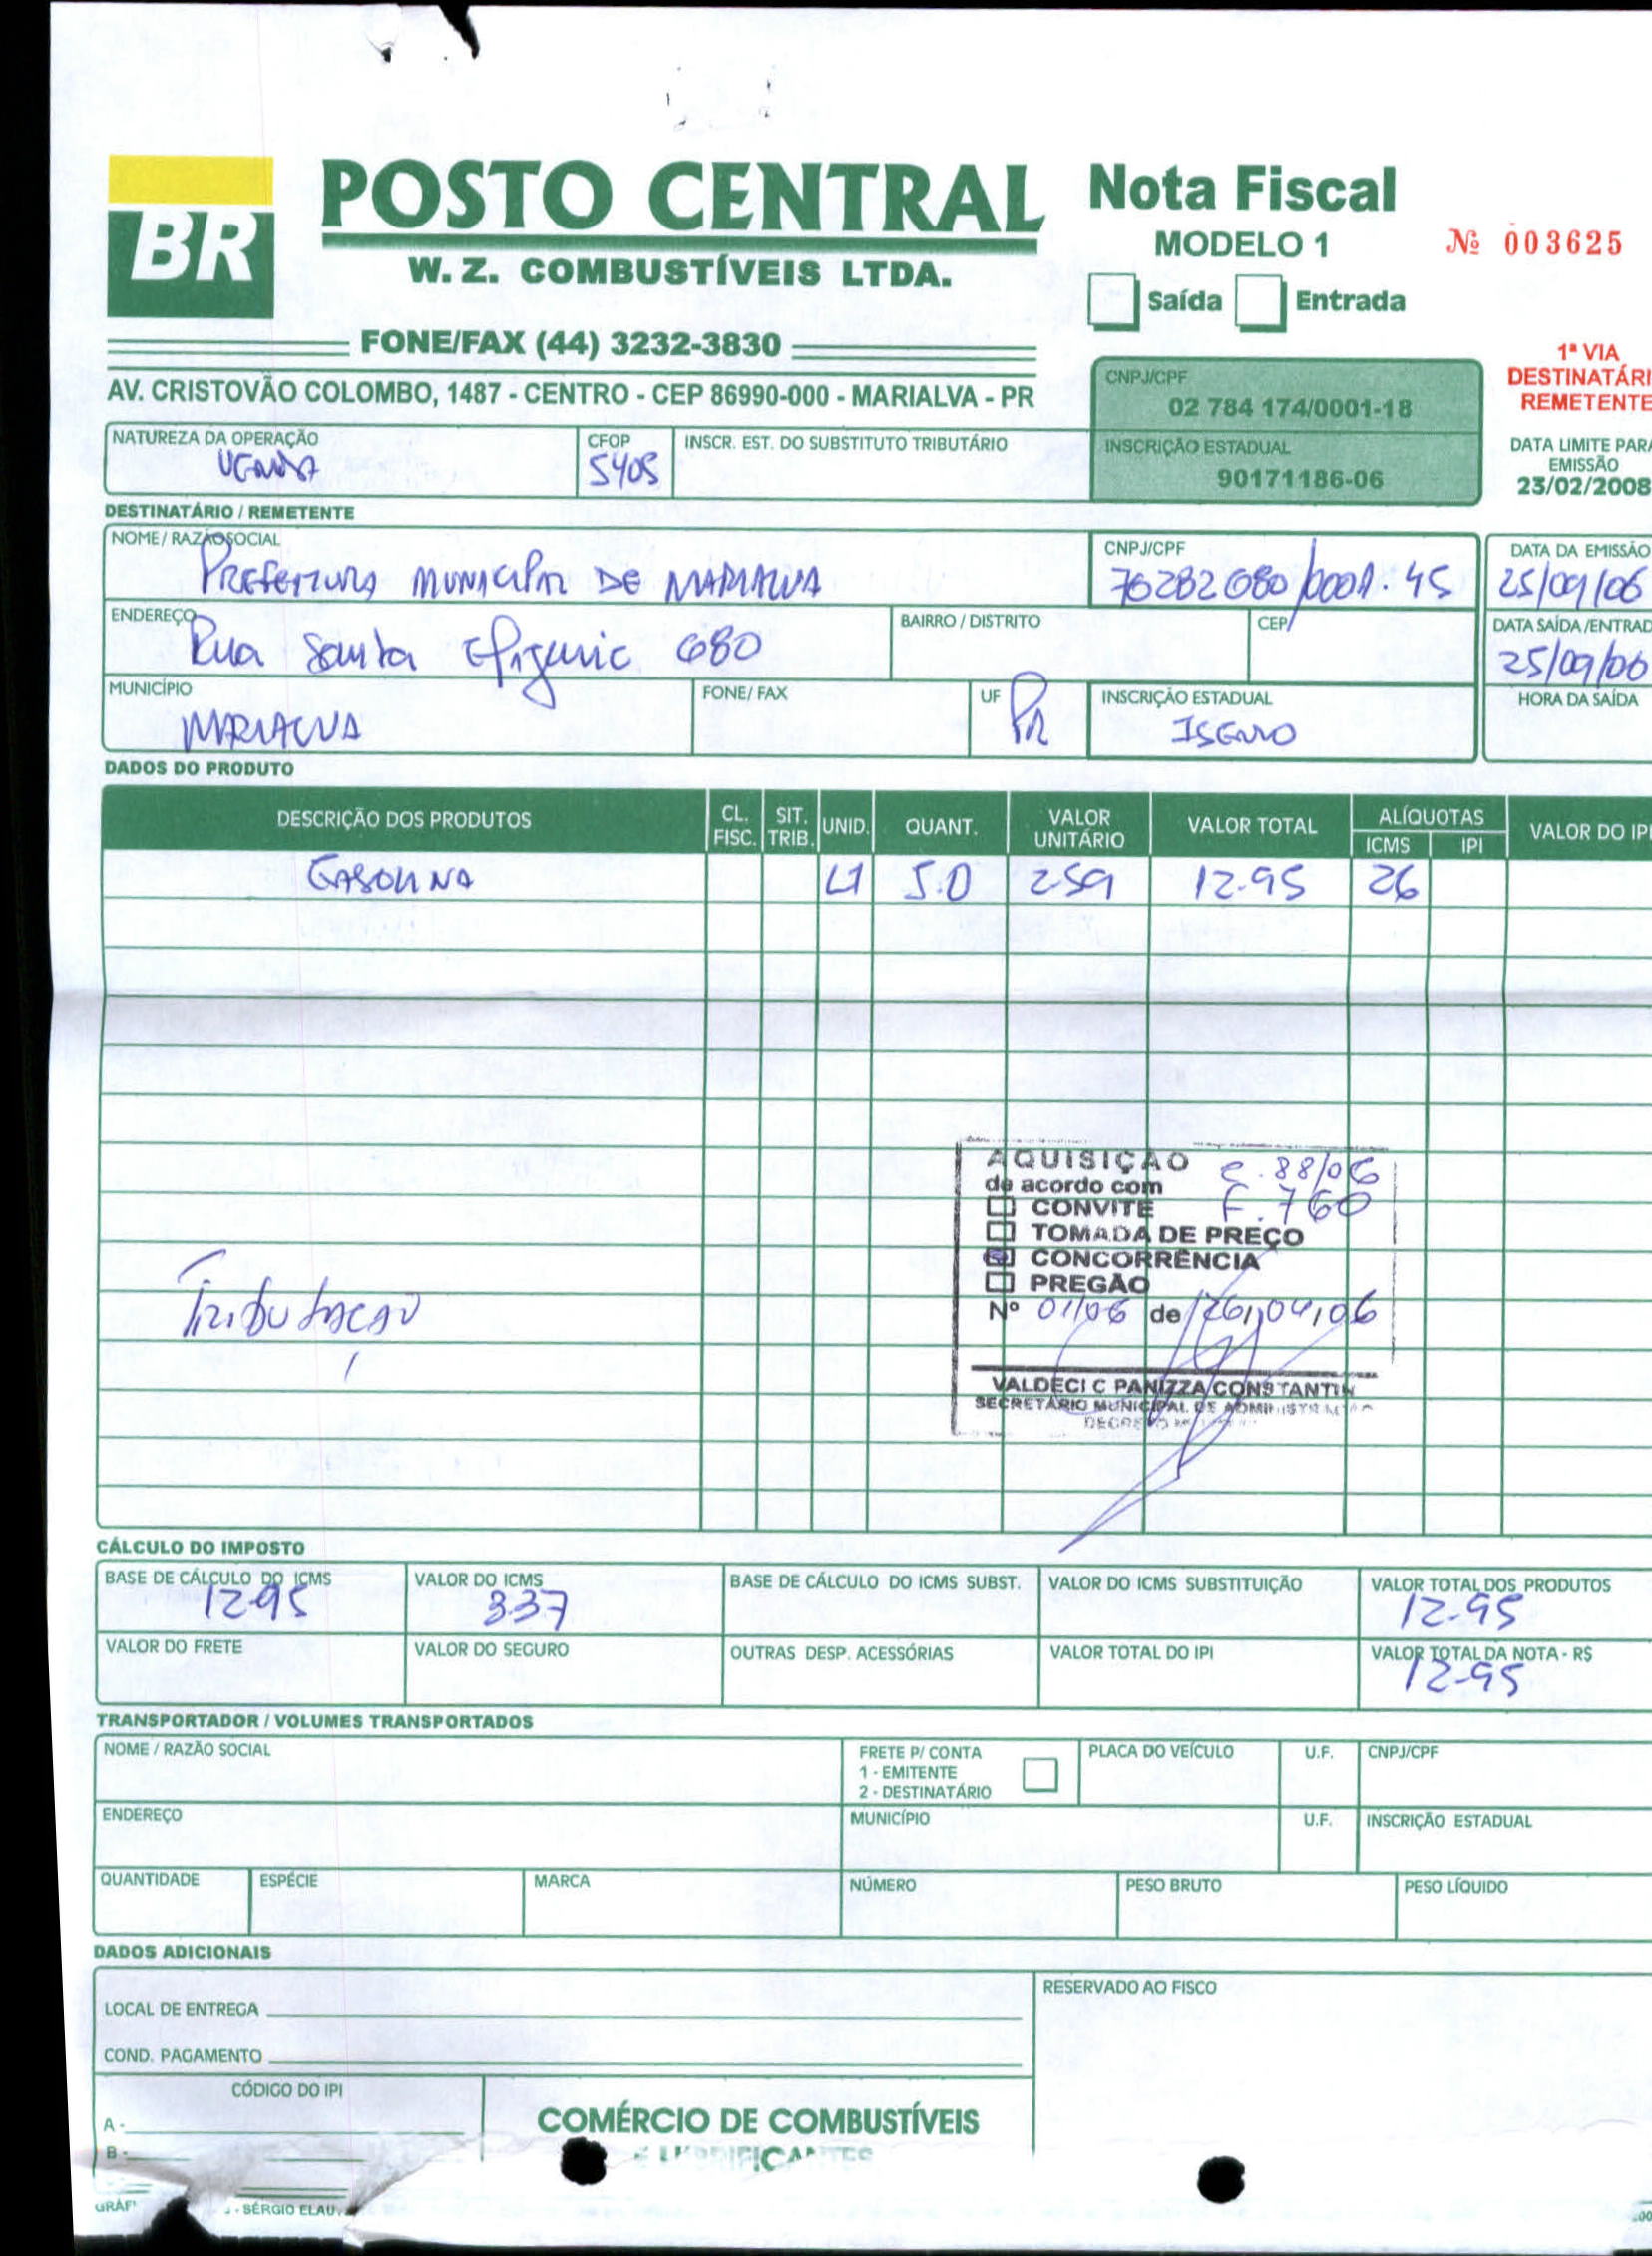 BR
POSTO CENTRAL
W. Z. COMBUSTÍVEIS LTDA.
FONE/FAX (44) 3232-3830
AV. CRISTOVÃO COLOMBO, 1487 - CENTRO - CEP 86990-000 - MARIALVA - PR
Nota Fiscal
MODELO 1
Nº 003625
Saída Entrada
1ª VIA
DESTINATÁRI
REMETENTE
CNPJ/CPF
02 784 174/0001-18
INSCRIÇÃO ESTADUAL
90171186-06
DATA LIMITE PARA
EMISSÃO
23/02/2008
NATUREZA DA OPERAÇÃO CFOP INSCR. EST. DO SUBSTITUTO TRIBUTÁRIO
VENDA 5405
DESTINATÁRIO / REMETENTE
NOME / RAZÃO SOCIAL CNPJ/CPF DATA DA EMISSÃO
PREFEITURA MUNICIPAL DE MARIALVA 76282680/0001-45 25/09/06
ENDEREÇO BAIRRO / DISTRITO CEP DATA SAÍDA/ENTRAD
Rua Santa Efigenia 680 25/09/06
MUNICÍPIO FONE / FAX UF INSCRIÇÃO ESTADUAL HORA DA SAÍDA
MARIALVA PR ISENTO
DADOS DO PRODUTO
DESCRIÇÃO DOS PRODUTOS CL. FISC. SIT. TRIB. UNID. QUANT. VALOR UNITÁRIO VALOR TOTAL ALÍQUOTAS ICMS IPI VALOR DO IPI
GASOLINA LT 5.0 2.59 12.95 26
AQUISIÇÃO C. 88/06
de acordo com
CONVITE F. 760
TOMADA DE PREÇO
CONCORRÊNCIA
PREGÃO
Nº 01/06 de 26/04/06
Tributação
VALDECI C PANIZZA CONSTANTIN
SECRETÁRIO MUNICIPAL DE ADMINISTRAÇÃO
CÁLCULO DO IMPOSTO
BASE DE CÁLCULO DO ICMS VALOR DO ICMS BASE DE CÁLCULO DO ICMS SUBST. VALOR DO ICMS SUBSTITUIÇÃO VALOR TOTAL DOS PRODUTOS
12.95 3.37 12.95
VALOR DO FRETE VALOR DO SEGURO OUTRAS DESP. ACESSÓRIAS VALOR TOTAL DO IPI VALOR TOTAL DA NOTA - R$
12.95
TRANSPORTADOR / VOLUMES TRANSPORTADOS
NOME / RAZÃO SOCIAL FRETE P/ CONTA PLACA DO VEÍCULO U.F. CNPJ/CPF
1 - EMITENTE
2 - DESTINATÁRIO
ENDEREÇO MUNICÍPIO U.F. INSCRIÇÃO ESTADUAL
QUANTIDADE ESPÉCIE MARCA NÚMERO PESO BRUTO PESO LÍQUIDO
DADOS ADICIONAIS
LOCAL DE ENTREGA
COND. PAGAMENTO
RESERVADO AO FISCO
CÓDIGO DO IPI
A -
B -
COMÉRCIO DE COMBUSTÍVEIS
E LUBRIFICANTES
GRÁF
- SÉRGIO ELAU